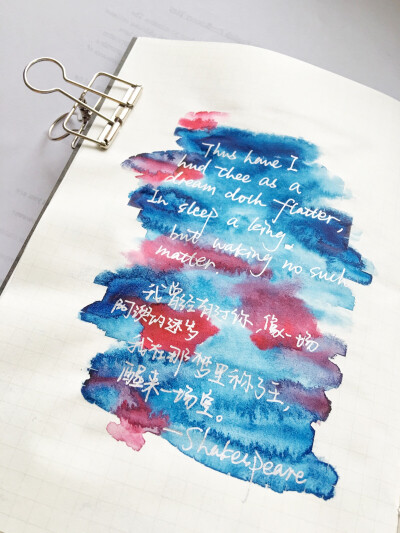 Thus have I
had thee as a
dream doth flatter,
In sleep a king
but waking no such
matter.
我曾经有过你,像一场
阿谀的迷梦
我在那梦里称了王,
醒来一场空。
—Shakespeare